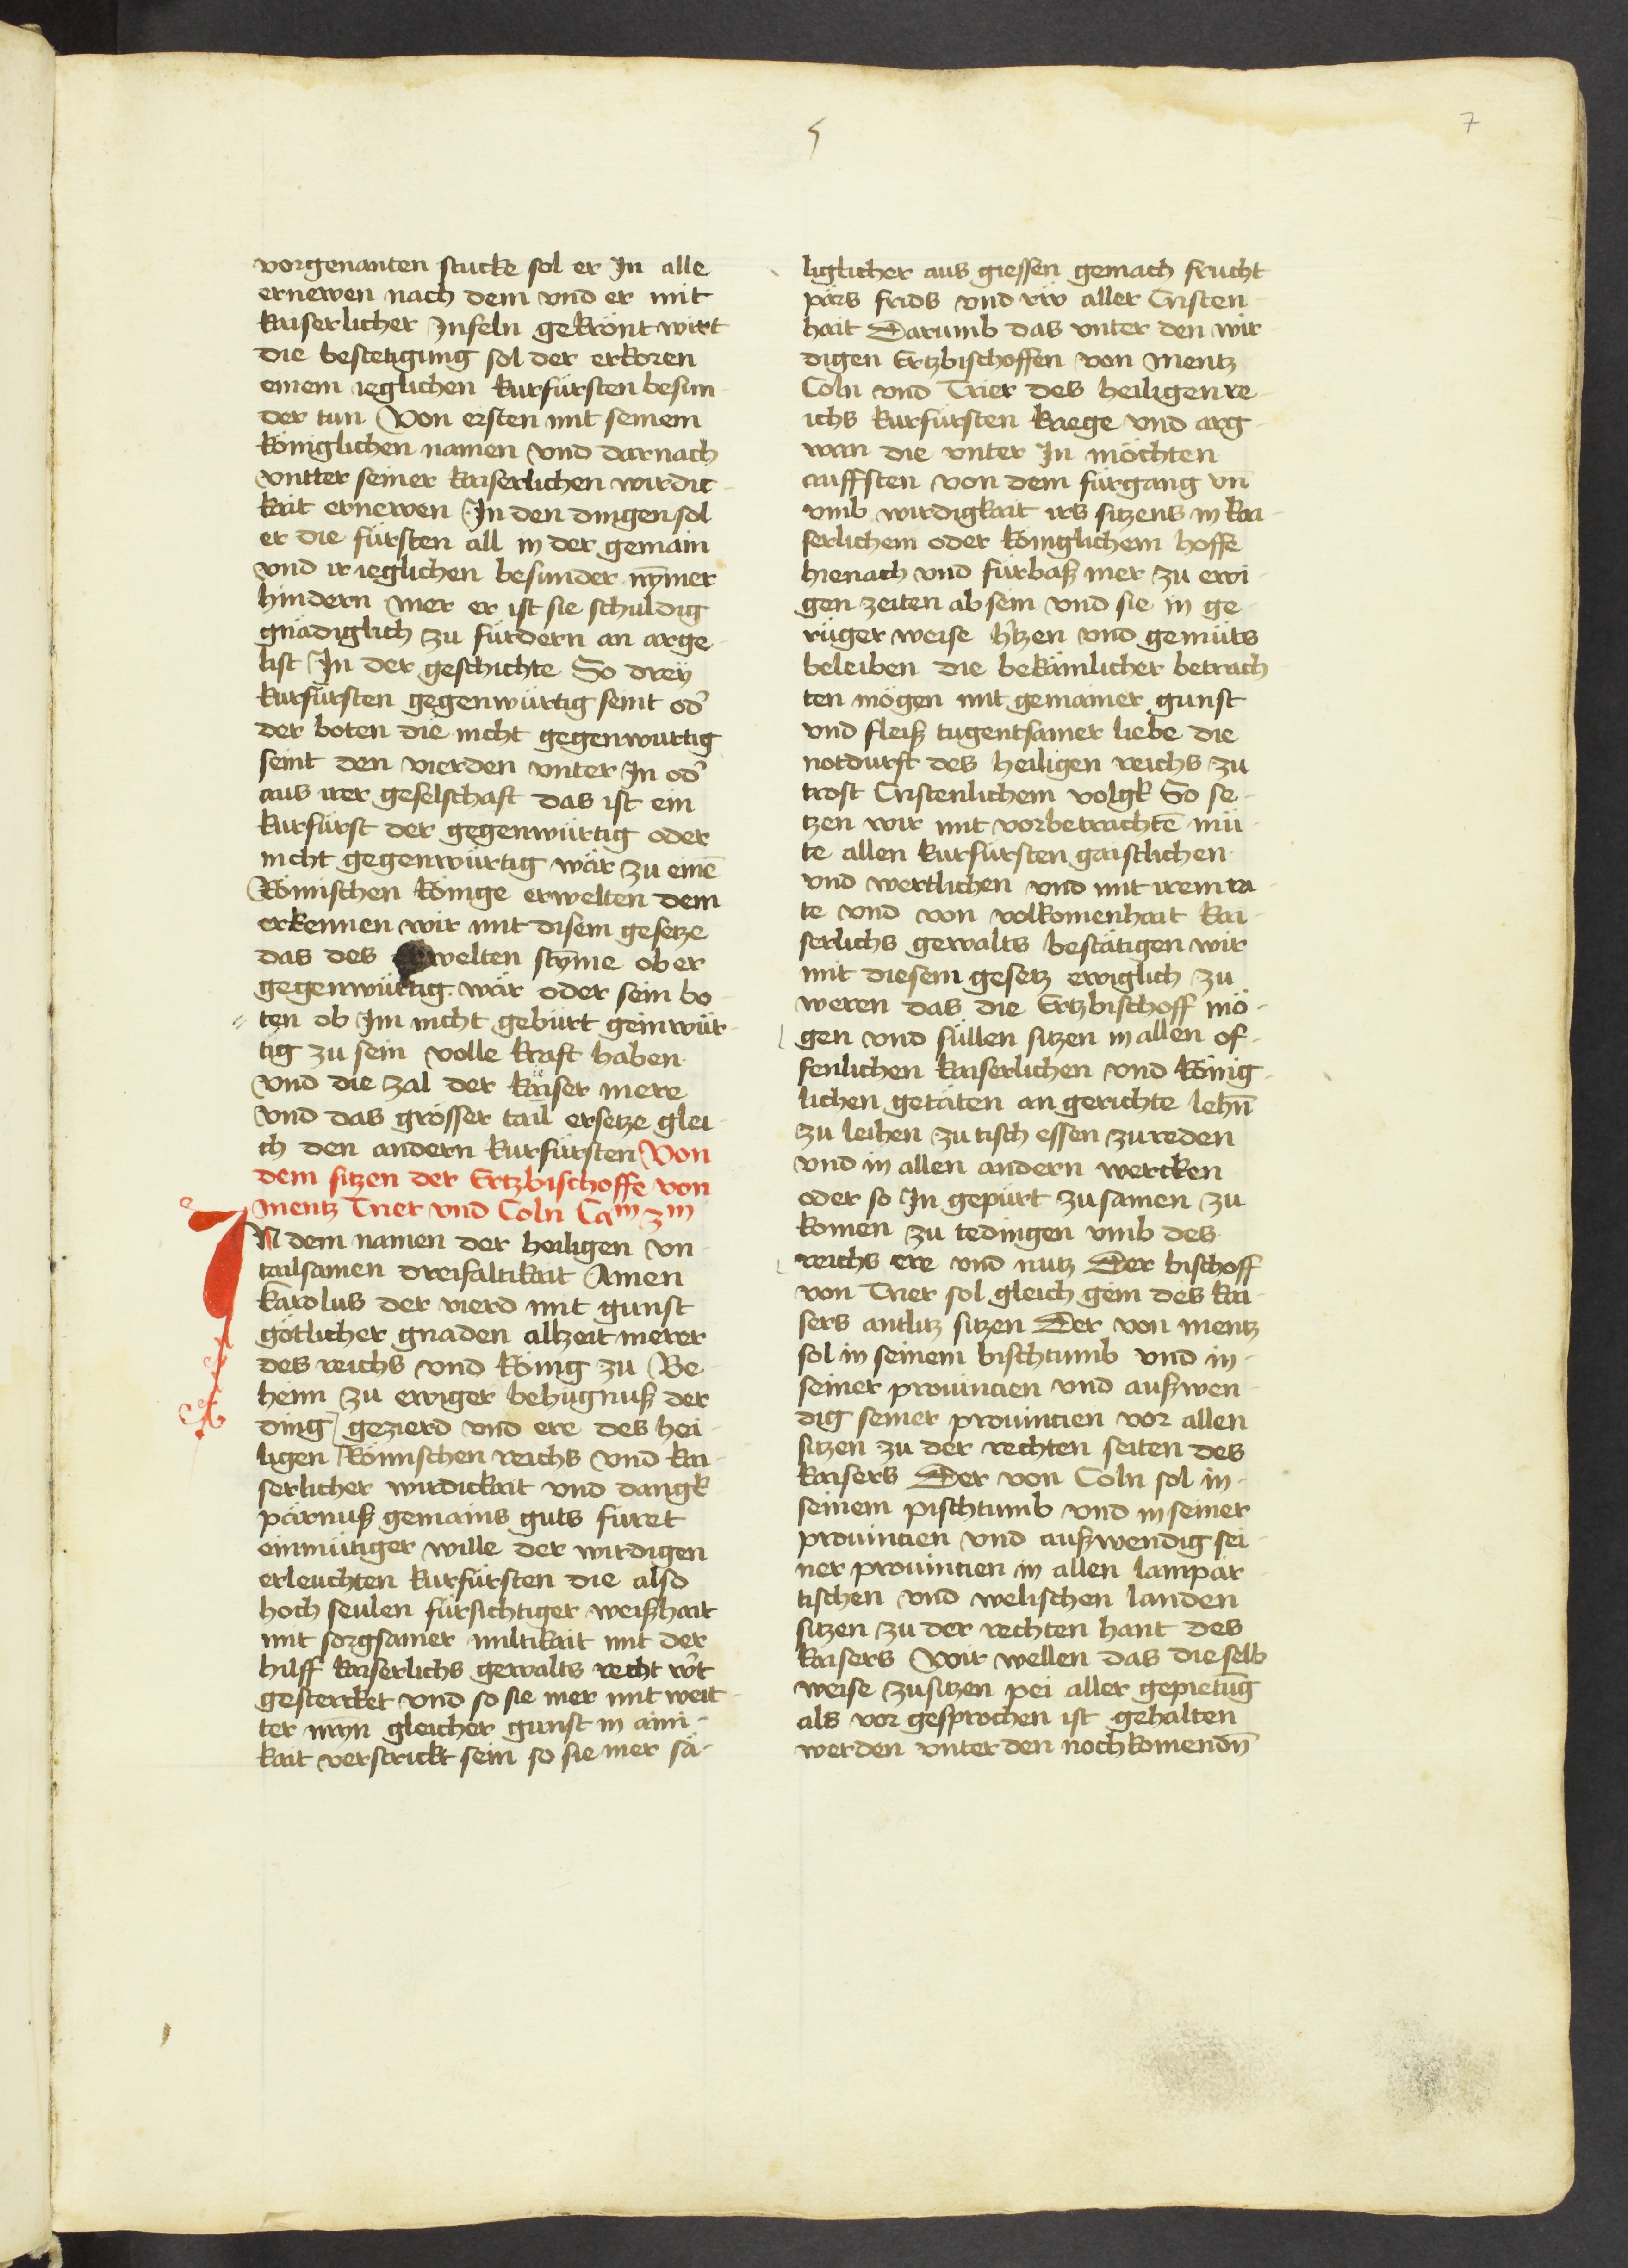 5
7
vorgenanten stucke sol er In alle
ernewen nach dem vnd er mit
kaiserlicher Infeln gekrönt wirt
die bestetigung sol der erkoren
einem ieglichen kurfürsten besun-
der tun Von ersten mit seinem
königlichen namen vnd darnach
vntter seiner kaiserlichen wirdic-
kait ernewen In den dingen sol
er die fürsten all in der gemain
vnd ir ieglichen besunder nȳmer
hindern mer er ist sie schuldig
gnädiglich zu fürdern an arge-
list In der geschichte So dreÿ
kurfürsten gegenwürtig seint od᾽
der boten die nicht gegenwurtig
seint den vierden vnter In od᾽
aus irer geselschaft das ist ein
kurfürst der gegenwürtig oder
nicht gegenwürtig wär zu einē
Römischen könige erwelten dem
erkennen wir mit disem gesetze
das des erwelten stȳme ob er
gegenwürtig wär oder sein bo-
ten ob Im nicht gebürt geinwür-
tig zu sein volle kraft haben
vnd die zal der kaiser mere
vnd das grösser tail ersetze glei-
ch den andern kurfürsten Von
dem sitzen der Ertzbischoffe von
mentz Trier vnd Coln Cam 3m
IN dem namen der heiligen vn-
tailsamen dreifaltikait Amen
karolus der vierd mit gunst
götlicher gnaden allzeit merer
des reichs vnd könig zu Be-
heim zu ewiger behügnuß der
ding gezierd vnd ere des hei-
ligen Römischen reichs vnd kai-
serlicher wirdickait vnd dangk-
pärnuß gemains guts füret
einmütiger wille der wirdigen
erleuchten kurfürsten die also
hoch seulen fürsichtiger weißhait
mit sorgsamer miltikait mit der
hilff kaiserlichs gewalts recht w᾽t
gestercket vnd so sie mer mit weit-
ter mȳn gleicher gunst in aini-
kait verstrickt sein so sie mer sä-
liglicher aus giessen gemach frucht
pärs frids vnd rw aller Cristen-
hait Darumb das vnter den wir-
digen Ertzbischoffen von mentz
Coln vnd Trier des heiligen re-
ichs kurfürsten kriege vnd arg-
wan die vnter In möchten
auffsten von dem fürgang vn̄
vmb wirdigkait irs sitzens in kai-
serlichem oder königlichem hoffe
hienach vnd fürbaß mer zu ewi-
gen zeiten ab sein vnd sie in ge-
rüger weise h᾽tzen vnd gemüts
beleiben die bekämlicher betrach-
ten mögen mit gemainer gunst
vnd fleiß tugentsamer liebe die
notdurft des heiligen reichs zu
trost Cristenlichem volgk So se-
tzen wir mit vorbetrachtē mü-
te allen kurfürsten gaistlichen
vnd wertlichen vnd mit irem ra-
te vnd von volkomenhait kai-
serlichs gewalts bestätigen wir
mit diesem gesetz ewiglich zu
weren das die Ertzbischoff mö-
gen vnd süllen sitzen in allen of-
fenlichen kaiserlichen vnd könig-
lichen getäten an gerichte lehn̄
zu leihen zu tisch essen zu reden
vnd in allen andern wercken
oder so In gepürt zu samen zu
komen zu tedingen vmb des
reichs ere vnd nutz Der bischoff
von Trier sol gleich gein des kai-
sers antlitz sitzen Der von mentz
sol in seinem bischtumb vnd in-
seiner prouincien vnd außwen-
dig seiner prouincien vor allen
sitzen zu der rechten seiten des
kaisers Der von Coln sol in-
seinem pischtumb vnd in seiner
prouincien vnd außwendig sei-
ner prouincien in allen lampar-
tischen vnd welischen landen
sitzen zu der rechten hant des
kaisers Wir wellen das die selb
weise zu sitzen pei aller gepietūg
als vor gesprochen ist gehalten
werden vnter den nochkomendn̄